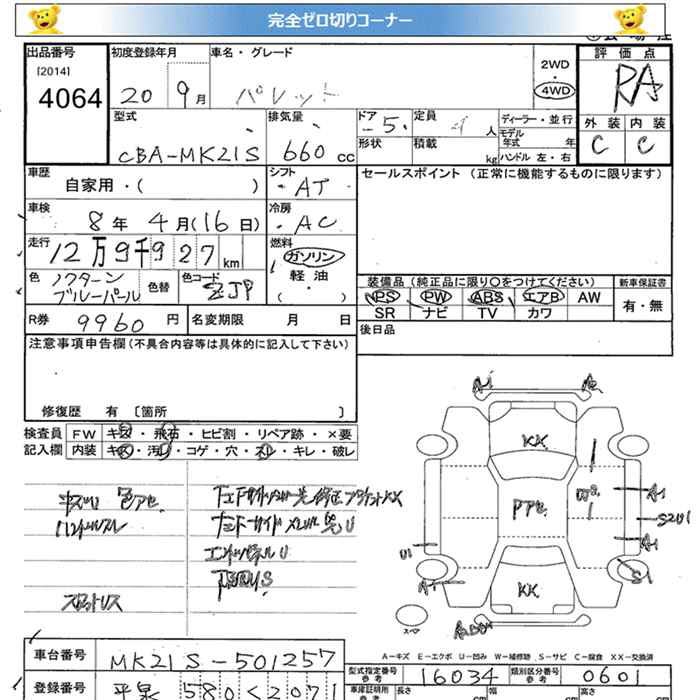 完全ゼロ切りコーナー
出品番号
[2014]
4064
初度登録年月
20 9月
車名・グレード
パレット
2WD
4WD
評価点
RA
外装 内装
C C
型式
CBA-MK21S
排気量
660 CC
ドア
5
形状
定員
人
積載
kg
ディーラー・並行
モデル
年式 年
ハンドル 左・右
車歴
自家用・( )
シフト
AT
セールスポイント (正常に機能するものに限ります)
車検
8年 4月(16日)
冷房
AC
走行
12万9千927km
燃料
ガソリン
軽油
( ・ )
色
ノクターン
ブルーパール
色替
色コード
ZJP
装備品(純正品に限り○をつけてください)
新車保証書
PS PW ABS エアB AW
SR ナビ TV カワ
有・無
R券 9960円
名変期限 月 日
後日品
注意事項申告欄(不具合内容等は具体的に記入して下さい)
修復歴 有 〔箇所 〕
検査員 FW キズ・飛石・ヒビ割・リペア跡・×要
記入欄 内装 キズ・汚レ・コゲ・穴・スレ・キレ・破レ
A1
KK
Pアセ
A1
S2U1
A1
U1
S1
KK
スペア
A-キズ E-エクボ U-凹み W-補修跡 S-サビ C-腐食 XX-交換済
車台番号
MK21S-501257
型式指定番号
参考
16034
類別区分番号
参考
0601
登録番号
平泉 580 く 2071
車庫証明用
参考
長さ
cm
幅
cm
高さ
cm